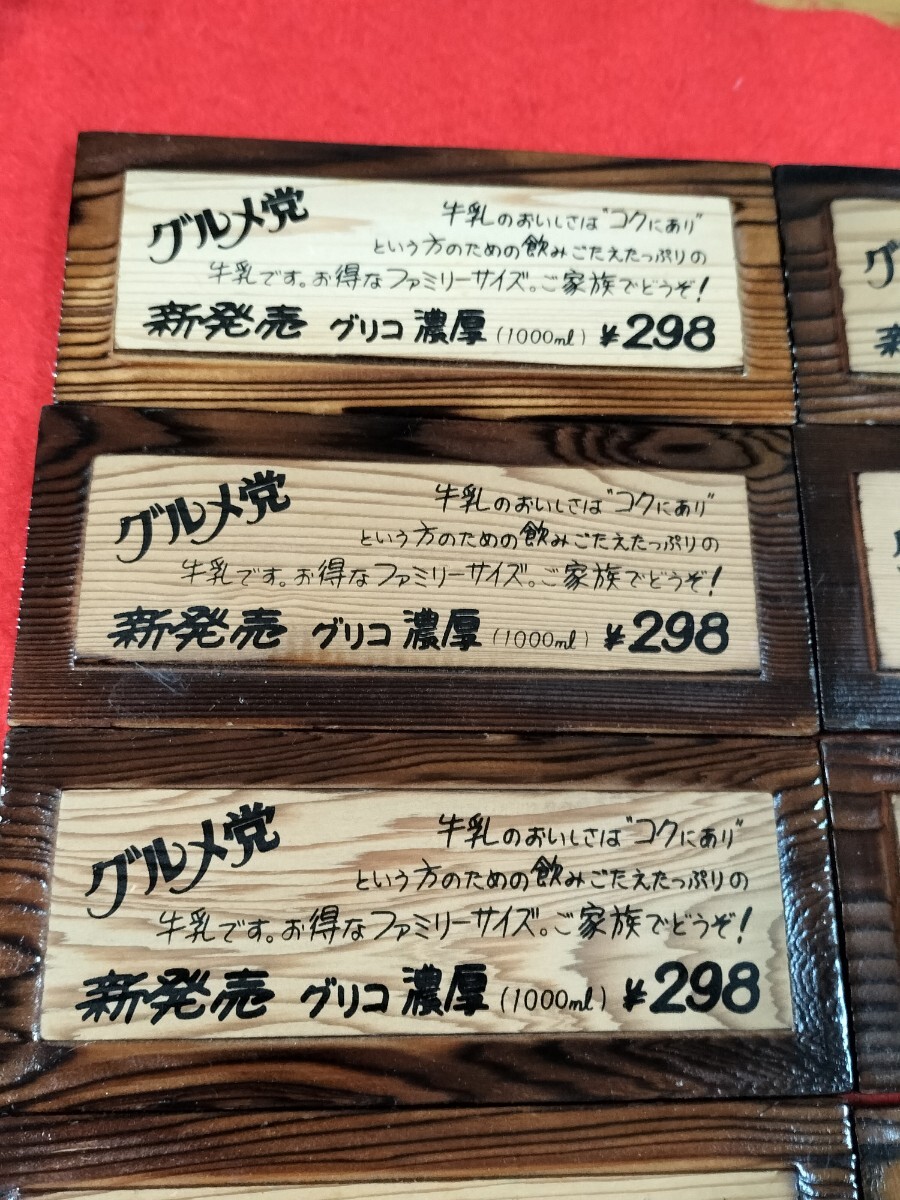 グルメ党
牛乳のおいしさは"コクにあり"
という方のための飲みごたえたっぷりの
牛乳です。お得なファミリーサイズ。ご家族でどうぞ!
新発売 グリコ 濃厚 (1000ml) ¥298
グルメ党
牛乳のおいしさは"コクにあり"
という方のための飲みごたえたっぷりの
牛乳です。お得なファミリーサイズ。ご家族でどうぞ!
新発売 グリコ 濃厚 (1000ml) ¥298
グルメ党
牛乳のおいしさは"コクにあり"
という方のための飲みごたえたっぷりの
牛乳です。お得なファミリーサイズ。ご家族でどうぞ!
新発売 グリコ 濃厚 (1000ml) ¥298